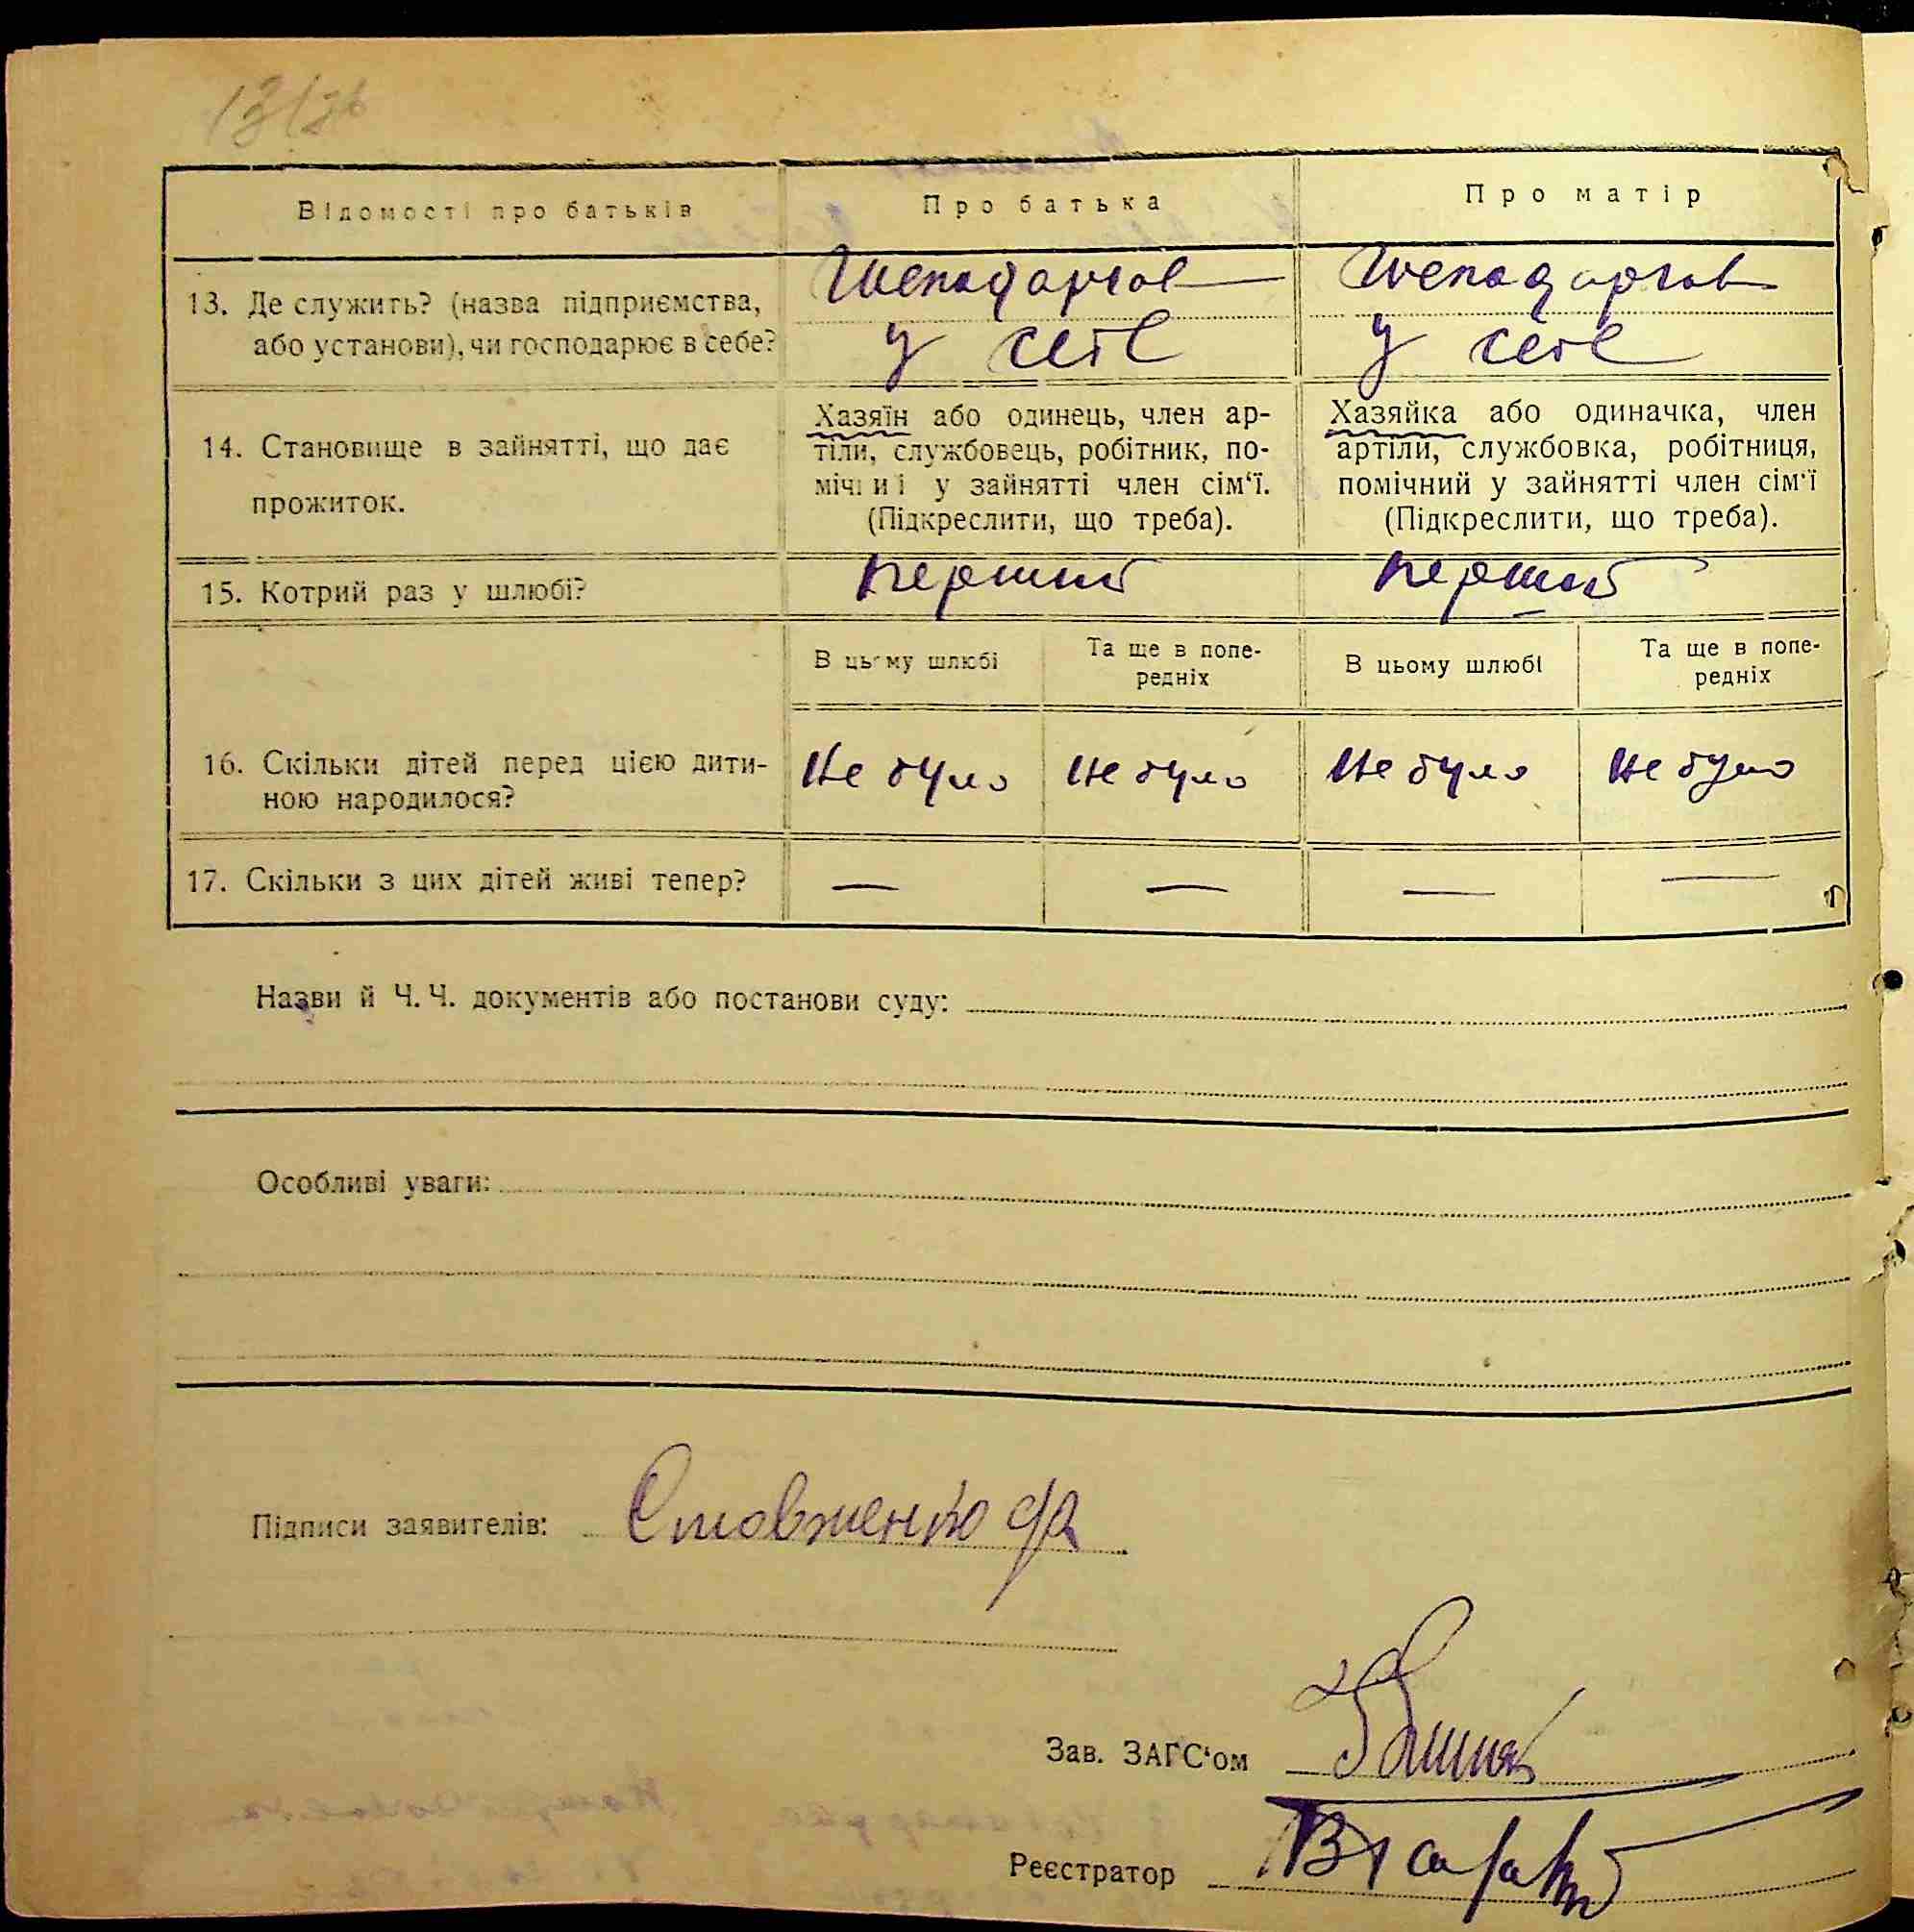 Відомості про батьків
Про батька
Про матір
13. Де служить? (назва підприємства,
або установи), чи господарює в себе?
у себе
у себе
14. Становище в зайнятті, що дає
прожиток.
Хазяїн або одинець, член ар-
тіли, службовець, робітник, по-
мічний у зайнятті член сім'ї.
(Підкреслити, що треба).
Хазяйка або одиначка, член
артіли, службовка, робітниця,
помічний у зайнятті член сім'ї
(Підкреслити, що треба).
15. Котрий раз у шлюбі?
перший
перший
В цьому шлюбі
Та ще в попе-
редніх
В цьому шлюбі
Та ще в попе-
редніх
16. Скільки дітей перед цією дити-
ною народилося?
Не було
Не було
Не було
Не було
17. Скільки з цих дітей живі тепер?
—
—
—
—
Назви й Ч. Ч. документів або постанови суду:
Особливі уваги:
Підписи заявителів:
Зав. ЗАГС'ом
Реєстратор